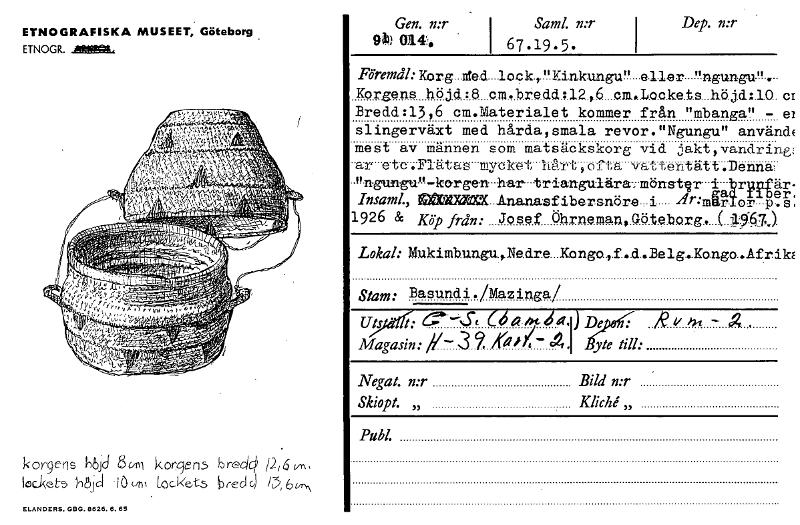 ETNOGRAFISKA MUSEET, Göteborg
ETNOGR.
korgens höjd 8cm korgens bredd 12,6 cm.
lockets höjd 10cm lockets bredd 13,6cm
ELANDERS, GBG. 8626. 6. 65
Gen. n:r Saml. n:r Dep. n:r
014. 67.19.5.
Föremål: Korg med lock,"Kinkungu" eller "ngungu".
Korgens höjd:8 cm.bredd:12,6 cm.Lockets höjd:10 cm
Bredd:13,6 cm.Materialet kommer från "mbanga" - en
slingerväxt med hårda,smala revor."Ngungu" använde
mest av männen som matsäckskorg vid jakt,vandring
ar etc.Flätas mycket hårt,ofta vattentätt.Denna
"ngungu"-korgen har triangulära mönster i brunfär-
gad fiber.
Insaml., Ananasfibersnöre i År: märlor p.s.
1926 & Köp från: Josef Öhrneman,Göteborg. (1967.)
Lokal: Mukimbungu,Nedre Kongo,f.d.Belg.Kongo.Afrika
Stam: Basundi./Mazinga/
Utställt: G-S. (bamba.) Depon: Rum-2.
Magasin: H-39. Kart.-2. Byte till:
Negat. n:r Bild n:r
Skiopt. „ Kliché „
Publ.